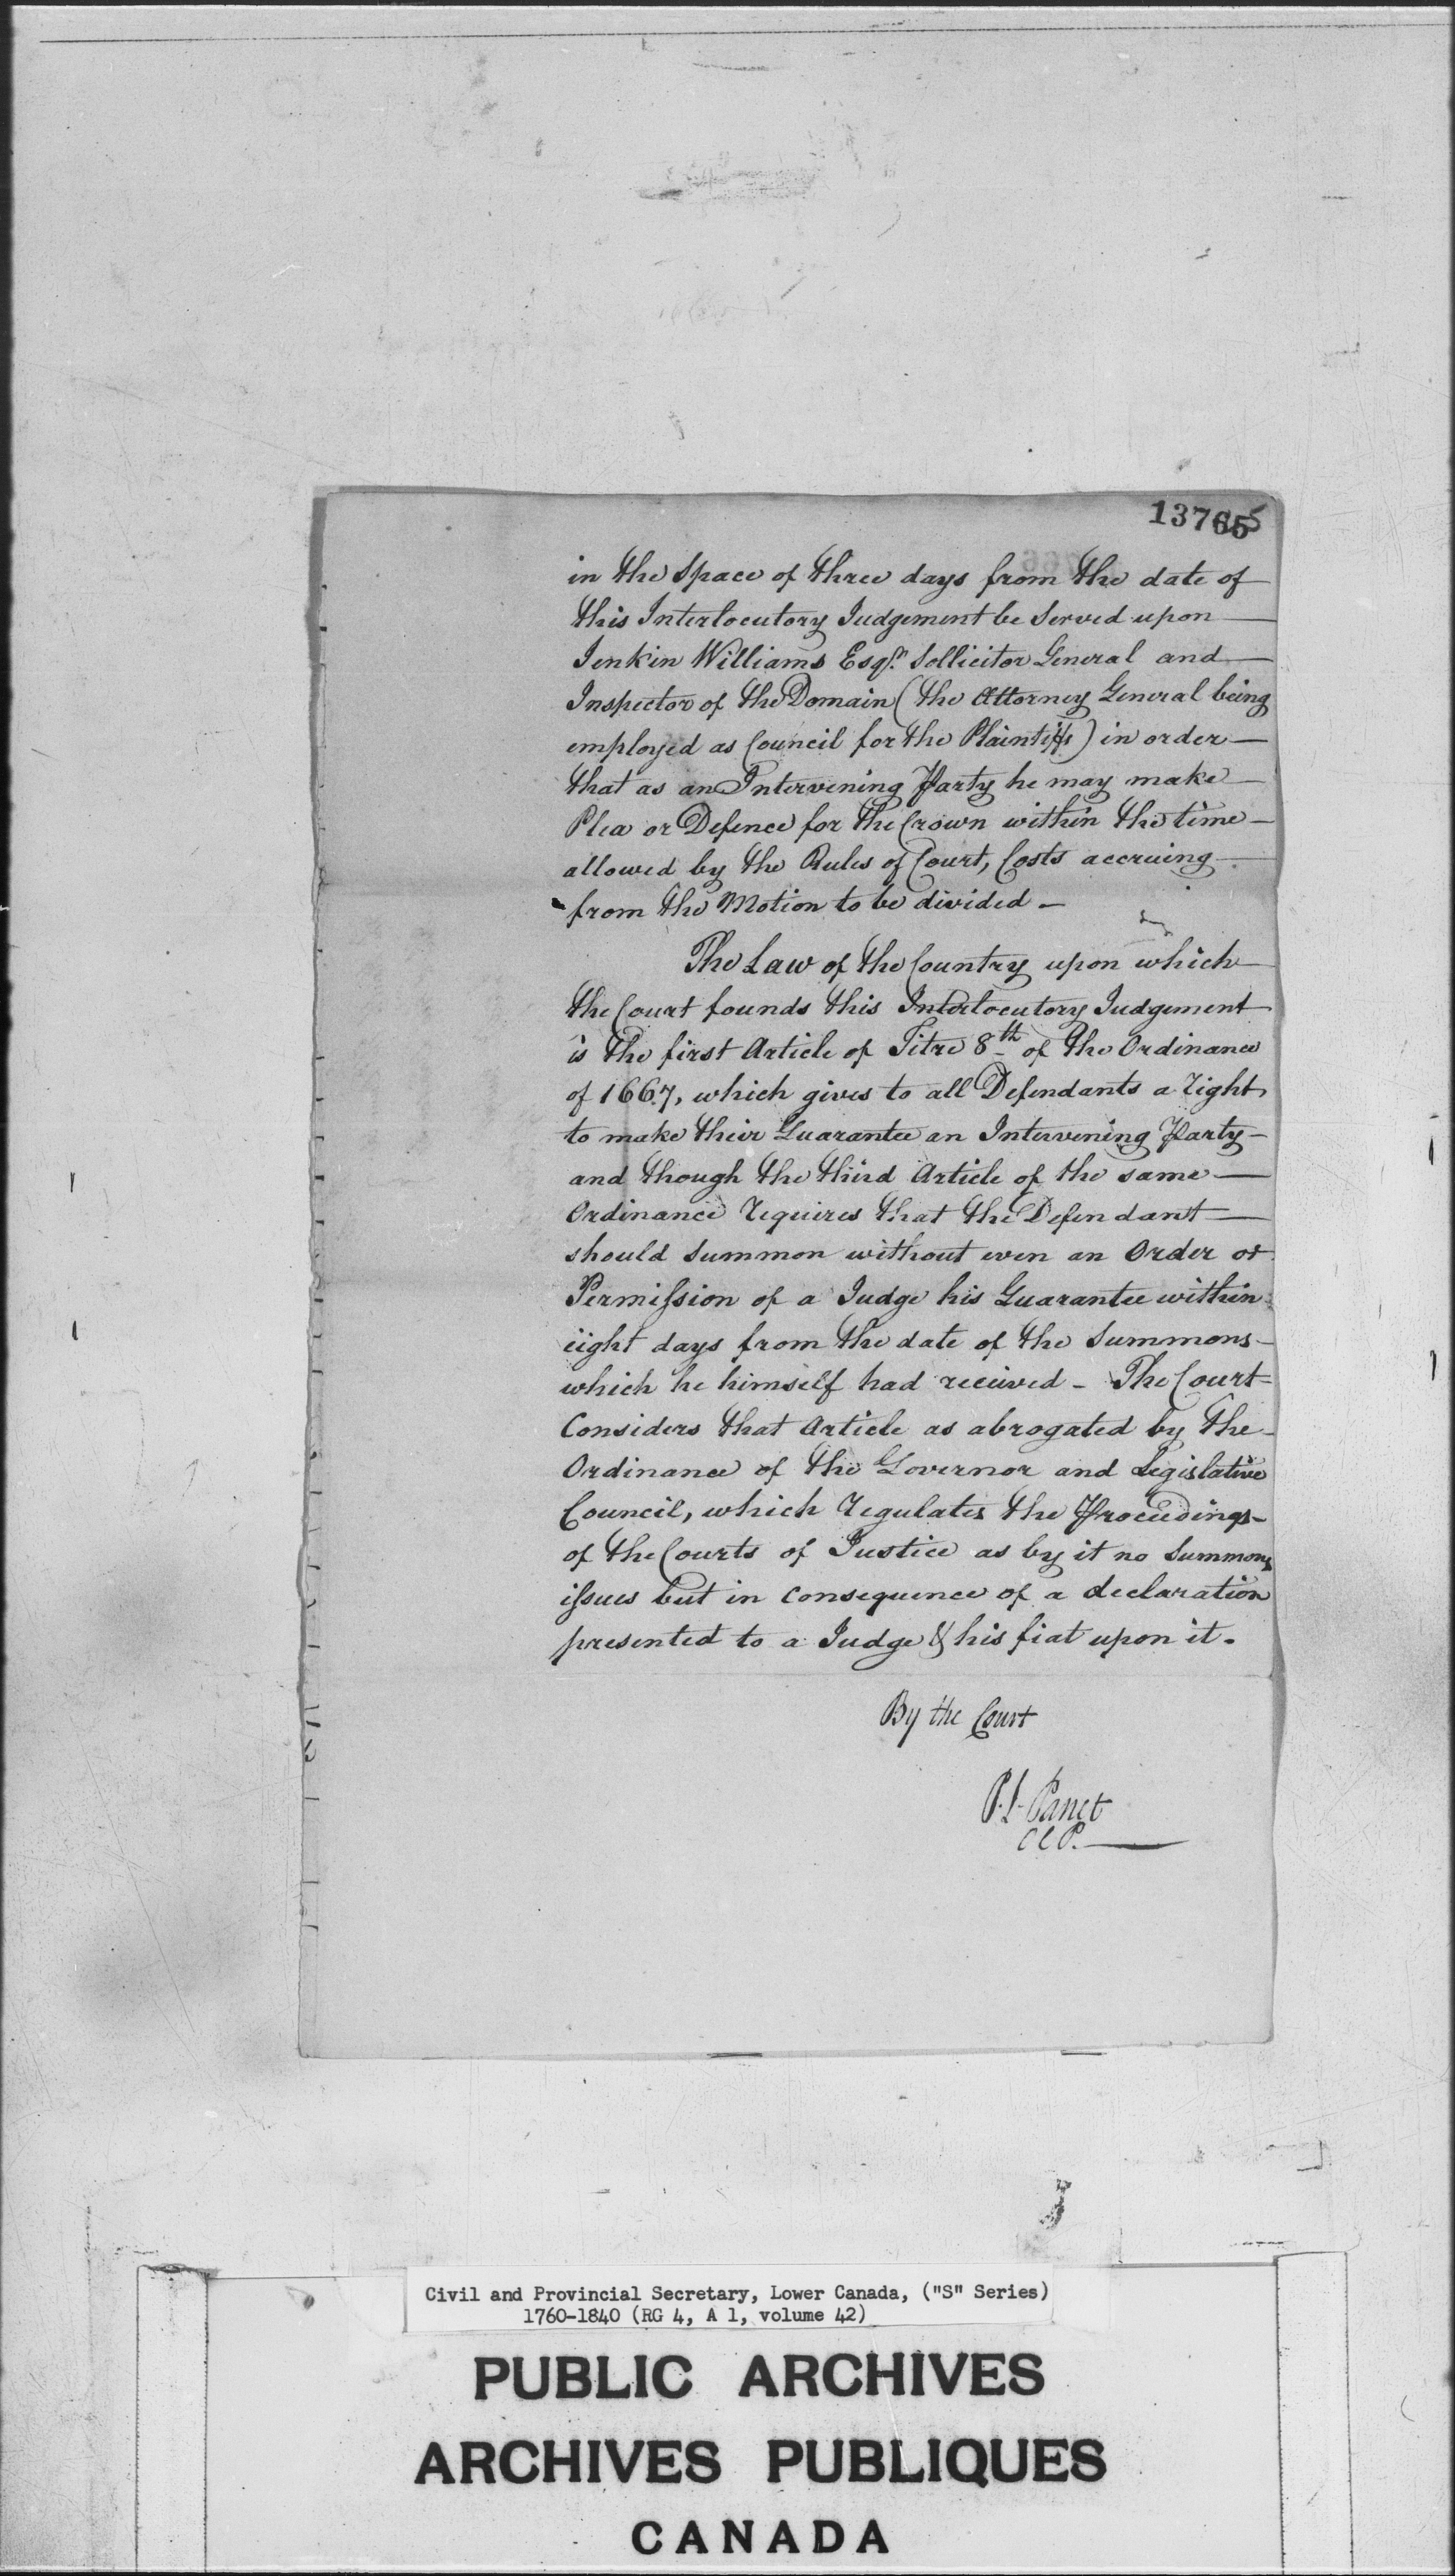 13765
in the Space of three days from the date of
this Interlocutory Judgement be Served upon
Jenkin Williams Esqr. Sollicitor General and
Inspector of the Domain (the Attorney General being
employed as Council for the Plaintiffs) in order
that as an Intervening Party he may make
Plea or Defence for the Crown within the time
allowed by the Rules of Court, Costs accruing
from the Motion to be divided -
The Law of the Country upon which
the Court founds this Interlocutory Judgement
is the first Article of Titre 8th of the Ordinance
of 1667, which gives to all Defendants a Right
to make their Guarantee an Intervening Party -
and though the third Article of the same
Ordinance Requires that the Defendant
should Summon without even an Order or
Permission of a Judge his Guarantee within
eight days from the date of the Summons
which he himself had received - The Court
Considers that Article as abrogated by the
Ordinance of the Governor and Legislative
Council, which Regulates the Proceedings
of the Courts of Justice as by it no Summons
issues but in Consequence of a declaration
presented to a Judge & his fiat upon it.
By the Court
P. L. Panet
C C P.
Civil and Provincial Secretary, Lower Canada, ("S" Series)
1760-1840 (RG 4, A 1, volume 42)
PUBLIC ARCHIVES
ARCHIVES PUBLIQUES
CANADA